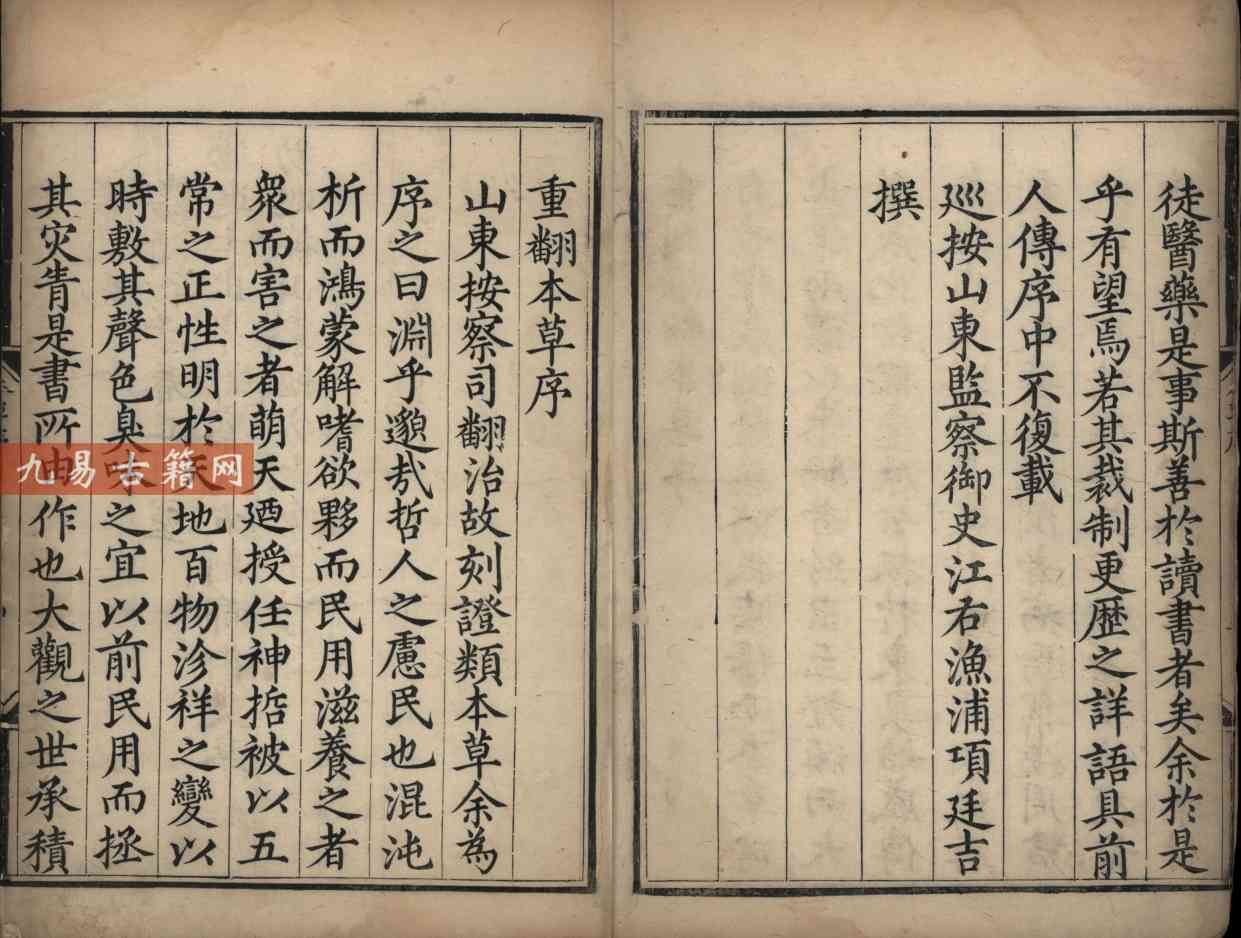 徒醫藥是事斯善於讀書者矣余於是
乎有望焉若其裁制更歷之詳語具前
人傳序中不復載
巡按山東監察御史江右漁浦項廷吉
撰
重翻本草序
山東按察司翻治故刻證類本草余為
序之曰淵乎邈哉哲人之慮民也混沌
析而鴻蒙解嗜欲夥而民用滋養之者
衆而害之者萌天廼授任神㧞被以五
常之正性明於天地百物沴祥之變以
時敷其聲色臭味之宜以前民用而拯
其灾眚是書所由作也大觀之世承積
九易古籍网